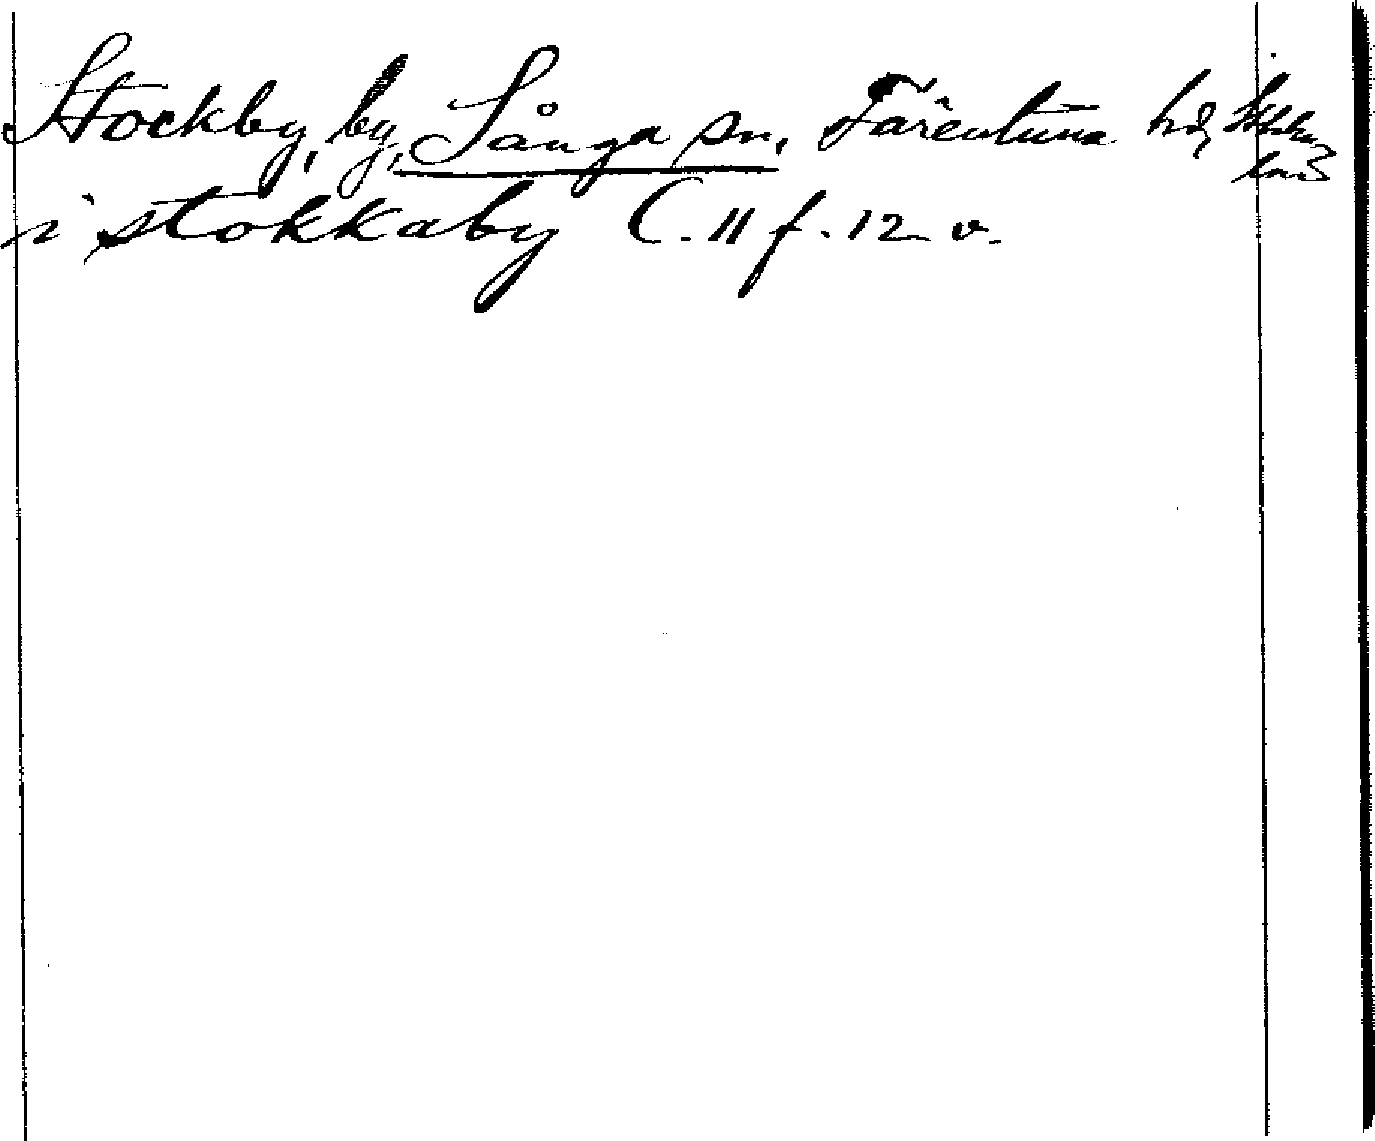 Stockby, by, Sånga sn, Färentuna hd, Sthlms
län
i stokkaby C. 11 f. 12 v.